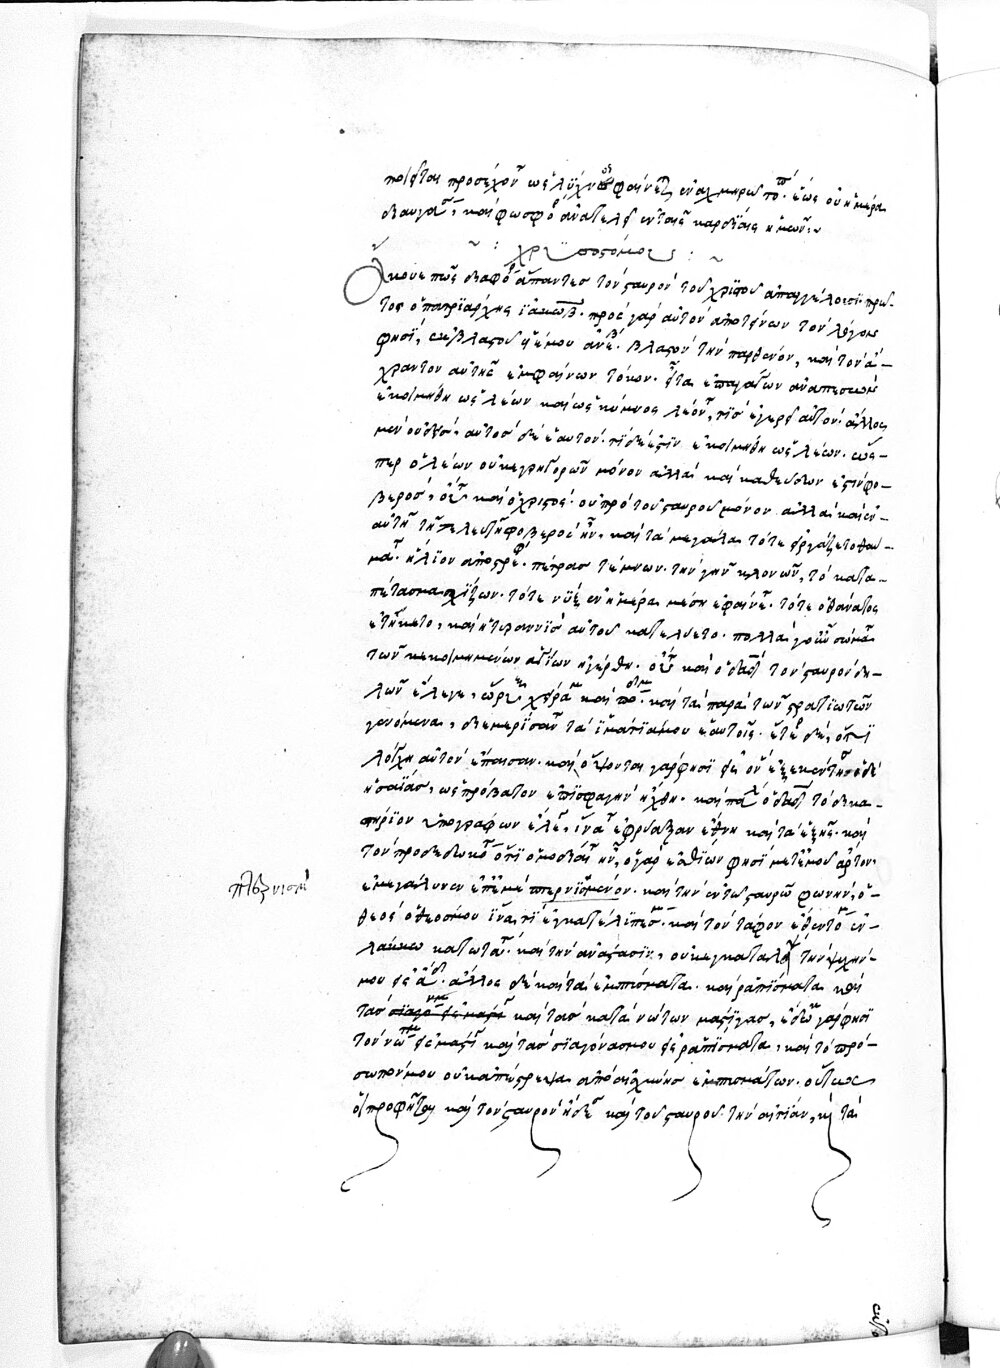 ποιεῖται προσέχοντες ὡς λύχνῳ φαίνοντι ἐν αὐχμηρῷ τόπῳ. ἕως οὗ ἡμέρα
διαυγάσῃ, καὶ φωσφόρος ἀνατείλῃ ἐν ταῖς καρδίαις ἡμῶν :~
~ : χρυσοστόμου : ~
Ἄκουε πῶς διαφόρως ἅπαντες τὸν σταυρὸν τοῦ χριστοῦ ἀπαγγέλουσι· πρῶ-
τος ὁ πατριάρχης ἰακώβ. πρὸς γὰρ αὐτὸν ἀποτείνων τὸν λόγον
φησί, ἐκ βλαστοῦ υἱέ μου ἀνέβης. βλαστὸν τὴν παρθένον, καὶ τὸν ἄ-
χραντον αὐτῆς ἐμφαίνων τόκον. εἶτα ἐπαγαγὼν ἀναπεσὼν
ἐκοιμήθη ὡς λέων καὶ ὡς σκύμνος λέοντος, τίς ἐγερεῖ αὐτόν. ἄλλος
μὲν οὐδείς. αὐτὸς δὲ ἑαυτόν. τί δέ ἐστιν ἐκοιμήθη ὡς λέων. ὥσ-
περ ὁ λέων οὐκ ἐγρηγορῶν μόνον ἀλλὰ καὶ καθεύδων ἐστὶ φο-
βερός, οὕτω καὶ ὁ χριστός. οὐ πρὸ τοῦ σταυροῦ μόνον ἀλλὰ καὶ ἐν
αὐτῇ τῇ τελευτῇ φοβερὸς ἦν, καὶ τὰ μεγάλα τότε εἰργάζετο θαύ-
ματα. ἥλιον ἀποστρέφων. πέτρας τέμνων. τὴν γῆν κλονῶν, τὸ κατα-
πέτασμα σχίζων. τότε νὺξ ἐν ἡμέρᾳ μέσῃ ἐφαίνετο. τότε ὁ θάνατος
ἐτήκετο, καὶ ἡ τυραννὶς αὐτοῦ κατελύετο. πολλὰ γοῦν σώματα
τῶν κεκοιμημένων ἁγίων ἠγέρθη. οὕτω καὶ ὁ δαυὶδ τὸν σταυρὸν δη-
λῶν ἔλεγε, ὤρυξαν χεῖράς μου καὶ πόδας μου. καὶ τὰ παρὰ τῶν στρατιωτῶν
γενόμενα, διεμερίσαντο τὰ ἱμάτιά μου ἑαυτοῖς.
λόγχῃ αὐτὸν ἔπαισαν. καὶ ὄψονται γάρ φησι εἰς ὃν ἐξεκέντησαν ὁ δὲ
ἡσαΐας, ὡς πρόβατον ἐπὶ σφαγὴν ἤχθη. καὶ πάλιν ὁ δαυὶδ τὸ δικα-
στήριον ὑπογράφων ἔλεγε, ἵνα τί ἐφρύαξαν ἔθνη καὶ τὰ ἑξῆς. καὶ
τὸν προδεδωκότα ὅτι ὁμοδίαιτος ἦν, ὁ γὰρ ἐσθίων φησὶ μετ' ἐμοῦ ἄρτον.
ἐμεγάλυνεν ἐπ' ἐμὲ πτερνισμόν. καὶ τὴν ἐν τῷ σταυρῷ φωνήν, ὁ
πτερνισμὸν
θεὸς ὁ θεός μου ἵνα τί ἐγκατέλιπές με. καὶ τὸν τάφον ἔθεντό με ἐν
λάκκῳ κατωτάτῳ. καὶ τὴν ἀνάστασιν, οὐκ ἐγκαταλείψεις τὴν ψυχήν
μου εἰς ᾅδην. ἄλλος δὲ καὶ τὰ ἐμπτύσματα. καὶ ῥαπίσματα καὶ
τὰς καὶ τὰς κατὰ νώτων μάστιγας, ἔδωκα γάρ φησι
τὸν νῶτόν μου εἰς μάστιγας καὶ τὰς σιαγόνας μου εἰς ῥαπίσματα, καὶ τὸ πρό-
σωπόν μου οὐκ ἀπέστρεψα ἀπὸ αἰσχύνης ἐμπτυσμάτων. οὕτως
οἱ προφῆται καὶ τὸν σταυρὸν ᾔδεσαν καὶ τοῦ σταυροῦ τὴν αἰτίαν, καὶ τὰ